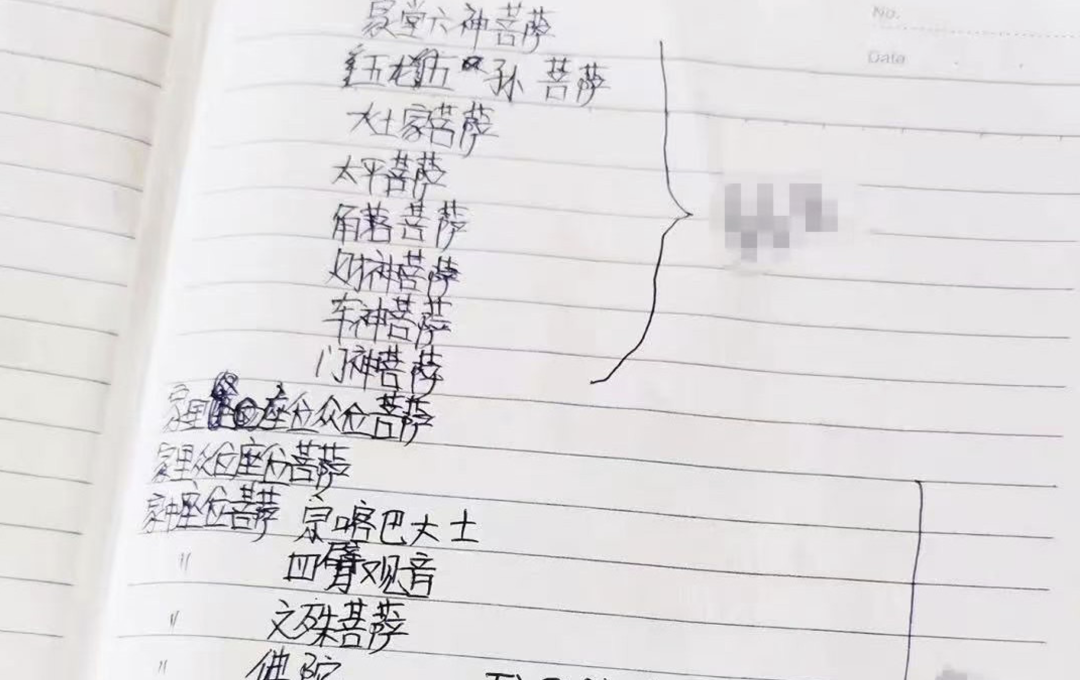 No.
Data
家堂六神菩萨
孙菩萨
水土家菩萨
太平菩萨
角落菩萨
财神菩萨
车神菩萨
门神菩萨
家里座位众位菩萨
家里众位座位菩萨
家中座位菩萨 宗喀巴大士
〃 四臂观音
〃 文殊菩萨
〃 佛陀